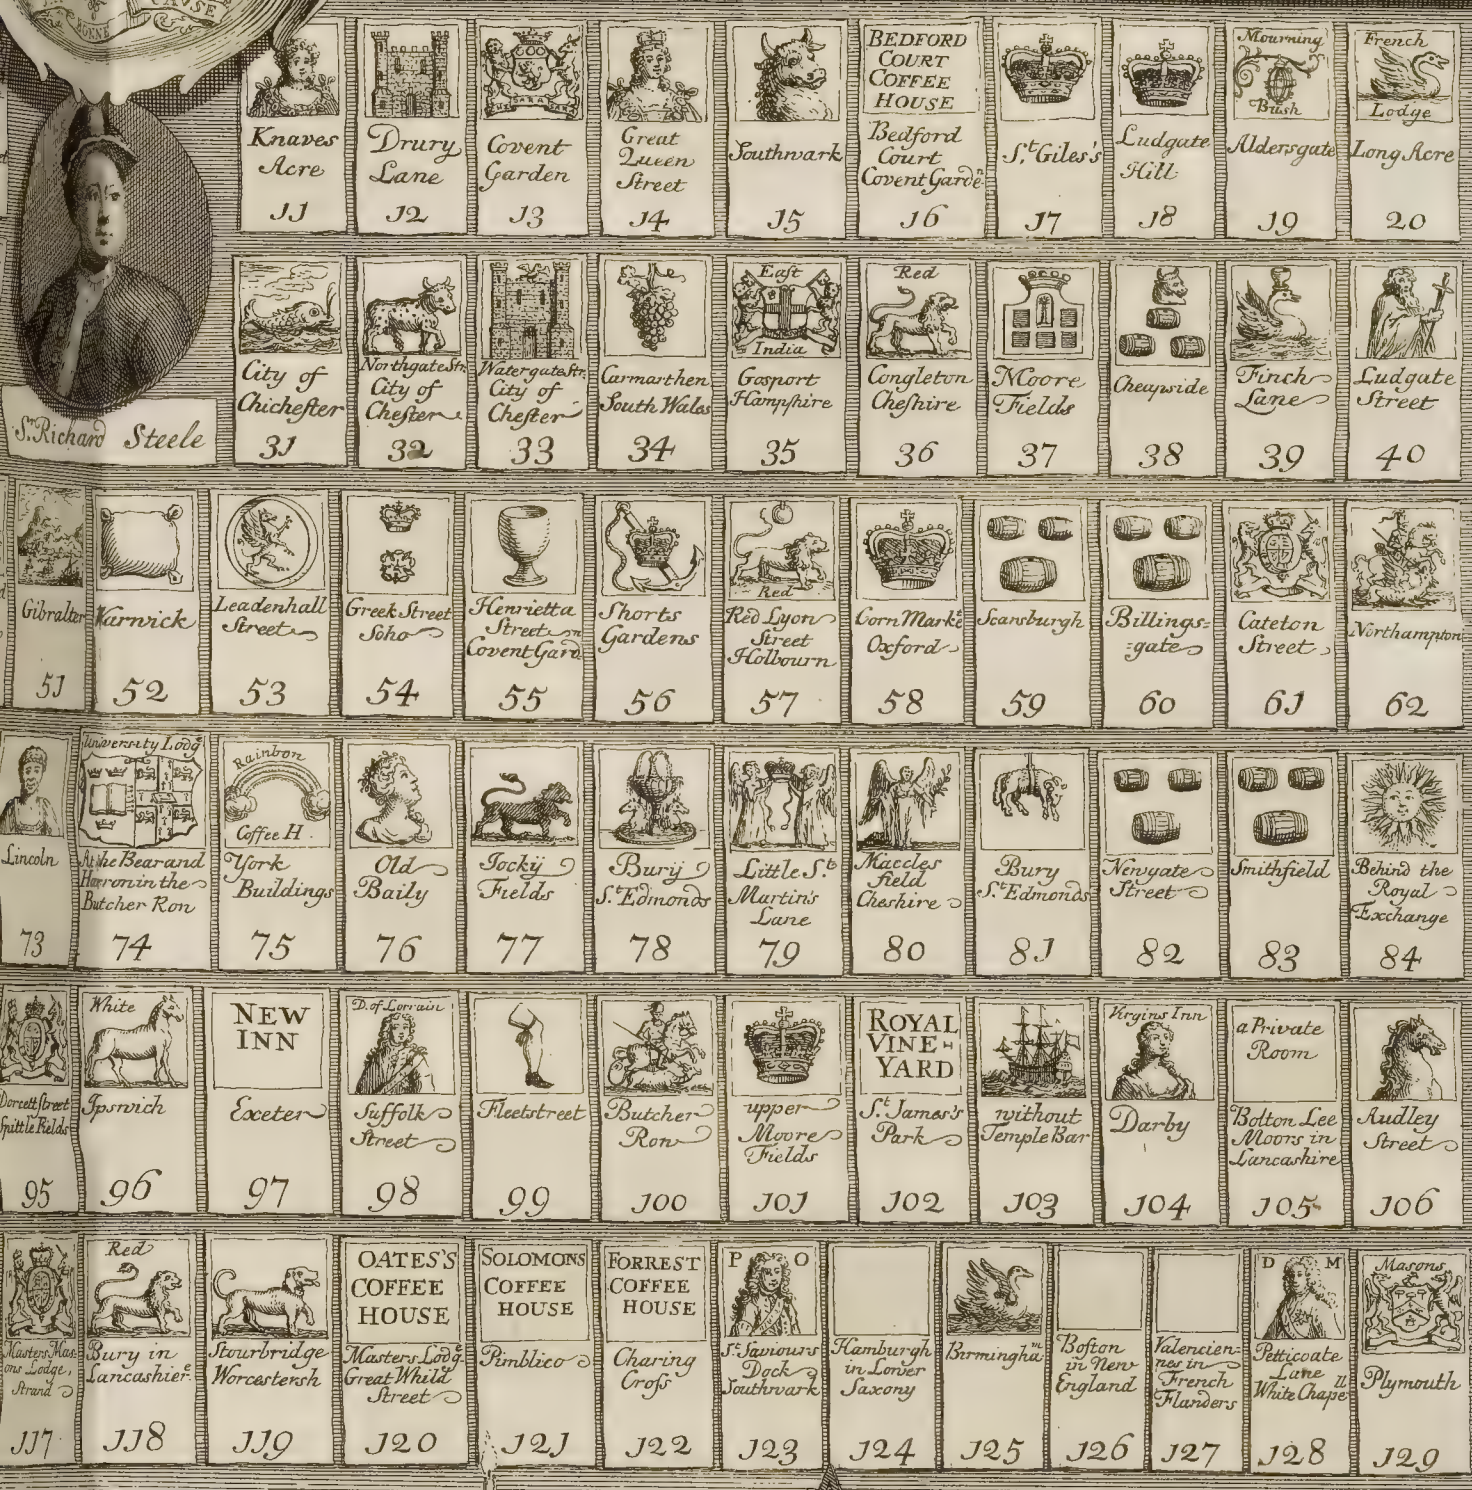 Knaves
Acre
11
Drury
Lane
12
Covent
Garden
13
Great
Queen
Street
14
Southwark
15
BEDFORD
COURT
COFFEE
HOUSE
Bedford
Court
Covent Garden
16
St. Giles's
17
Ludgate
Hill
18
Mourning
Bush
Aldersgate
19
French
Lodge
Long Acre
20
Sr. Richard Steele
City of
Chichester
31
Northgate Str.
City of
Chester
32
Watergate Str.
City of
Chester
33
Carmarthen
South Wales
34
East
India
Gosport
Hampshire
35
Red
Congleton
Cheshire
36
Moore
Fields
37
Cheapside
38
Finch
Lane
39
Ludgate
Street
40
Gibralter
51
Warwick
52
Leadenhall
Street
53
Greek Street
Soho
54
Henrietta
Street in
Covent Gard.
55
Shorts
Gardens
56
Red
Red Lyon
Street
Holbourn
57
Corn Market
Oxford
58
Scansburgh
59
Billings=
=gate
60
Cateton
Street
61
Northampton
62
Lincoln
73
University Lodge
At the Bear and
Harron in the
Butcher Ron
74
Rainbon
Coffee H.
York
Buildings
75
Old
Baily
76
Jocky
Fields
77
Bury
St. Edmonds
78
Little St.
Martin's
Lane
79
Maccles
field
Cheshire
80
Bury
St. Edmonds
81
Newgate
Street
82
Smithfield
83
Behind the
Royal
Exchange
84
Dorcett street
Spittle Fields
95
White
Ipswich
96
NEW
INN
Exeter
97
D. of Lorrain
Suffolk
Street
98
Fleetstreet
99
Butcher
Ron
100
upper
Moore
Fields
101
ROYAL
VINE-
YARD
St. James's
Park
102
without
Temple Bar
103
Virgins Inn
Darby
104
a Private
Room
Bolton Lee
Moors in
Lancashire
105
Audley
Street
106
Masters Mas-
ons Lodge,
Strand
117
Red
Bury in
Lancashier
118
Stourbridge
Worcestersh
119
OATES'S
COFFEE
HOUSE
Masters Lodg.
Great Whild
Street
120
SOLOMONS
COFFEE
HOUSE
Pimblico
121
FORREST
COFFEE
HOUSE
Charing
Cross
122
P O
St. Saviours
Dock
Southwark
123
Hamburgh
in Lower
Saxony
124
Birmingham
125
Boston
in New
England
126
Valencien-
nes in
French
Flanders
127
D M
Petticoate
Lane
White Chapell
128
Masons
Plymouth
129